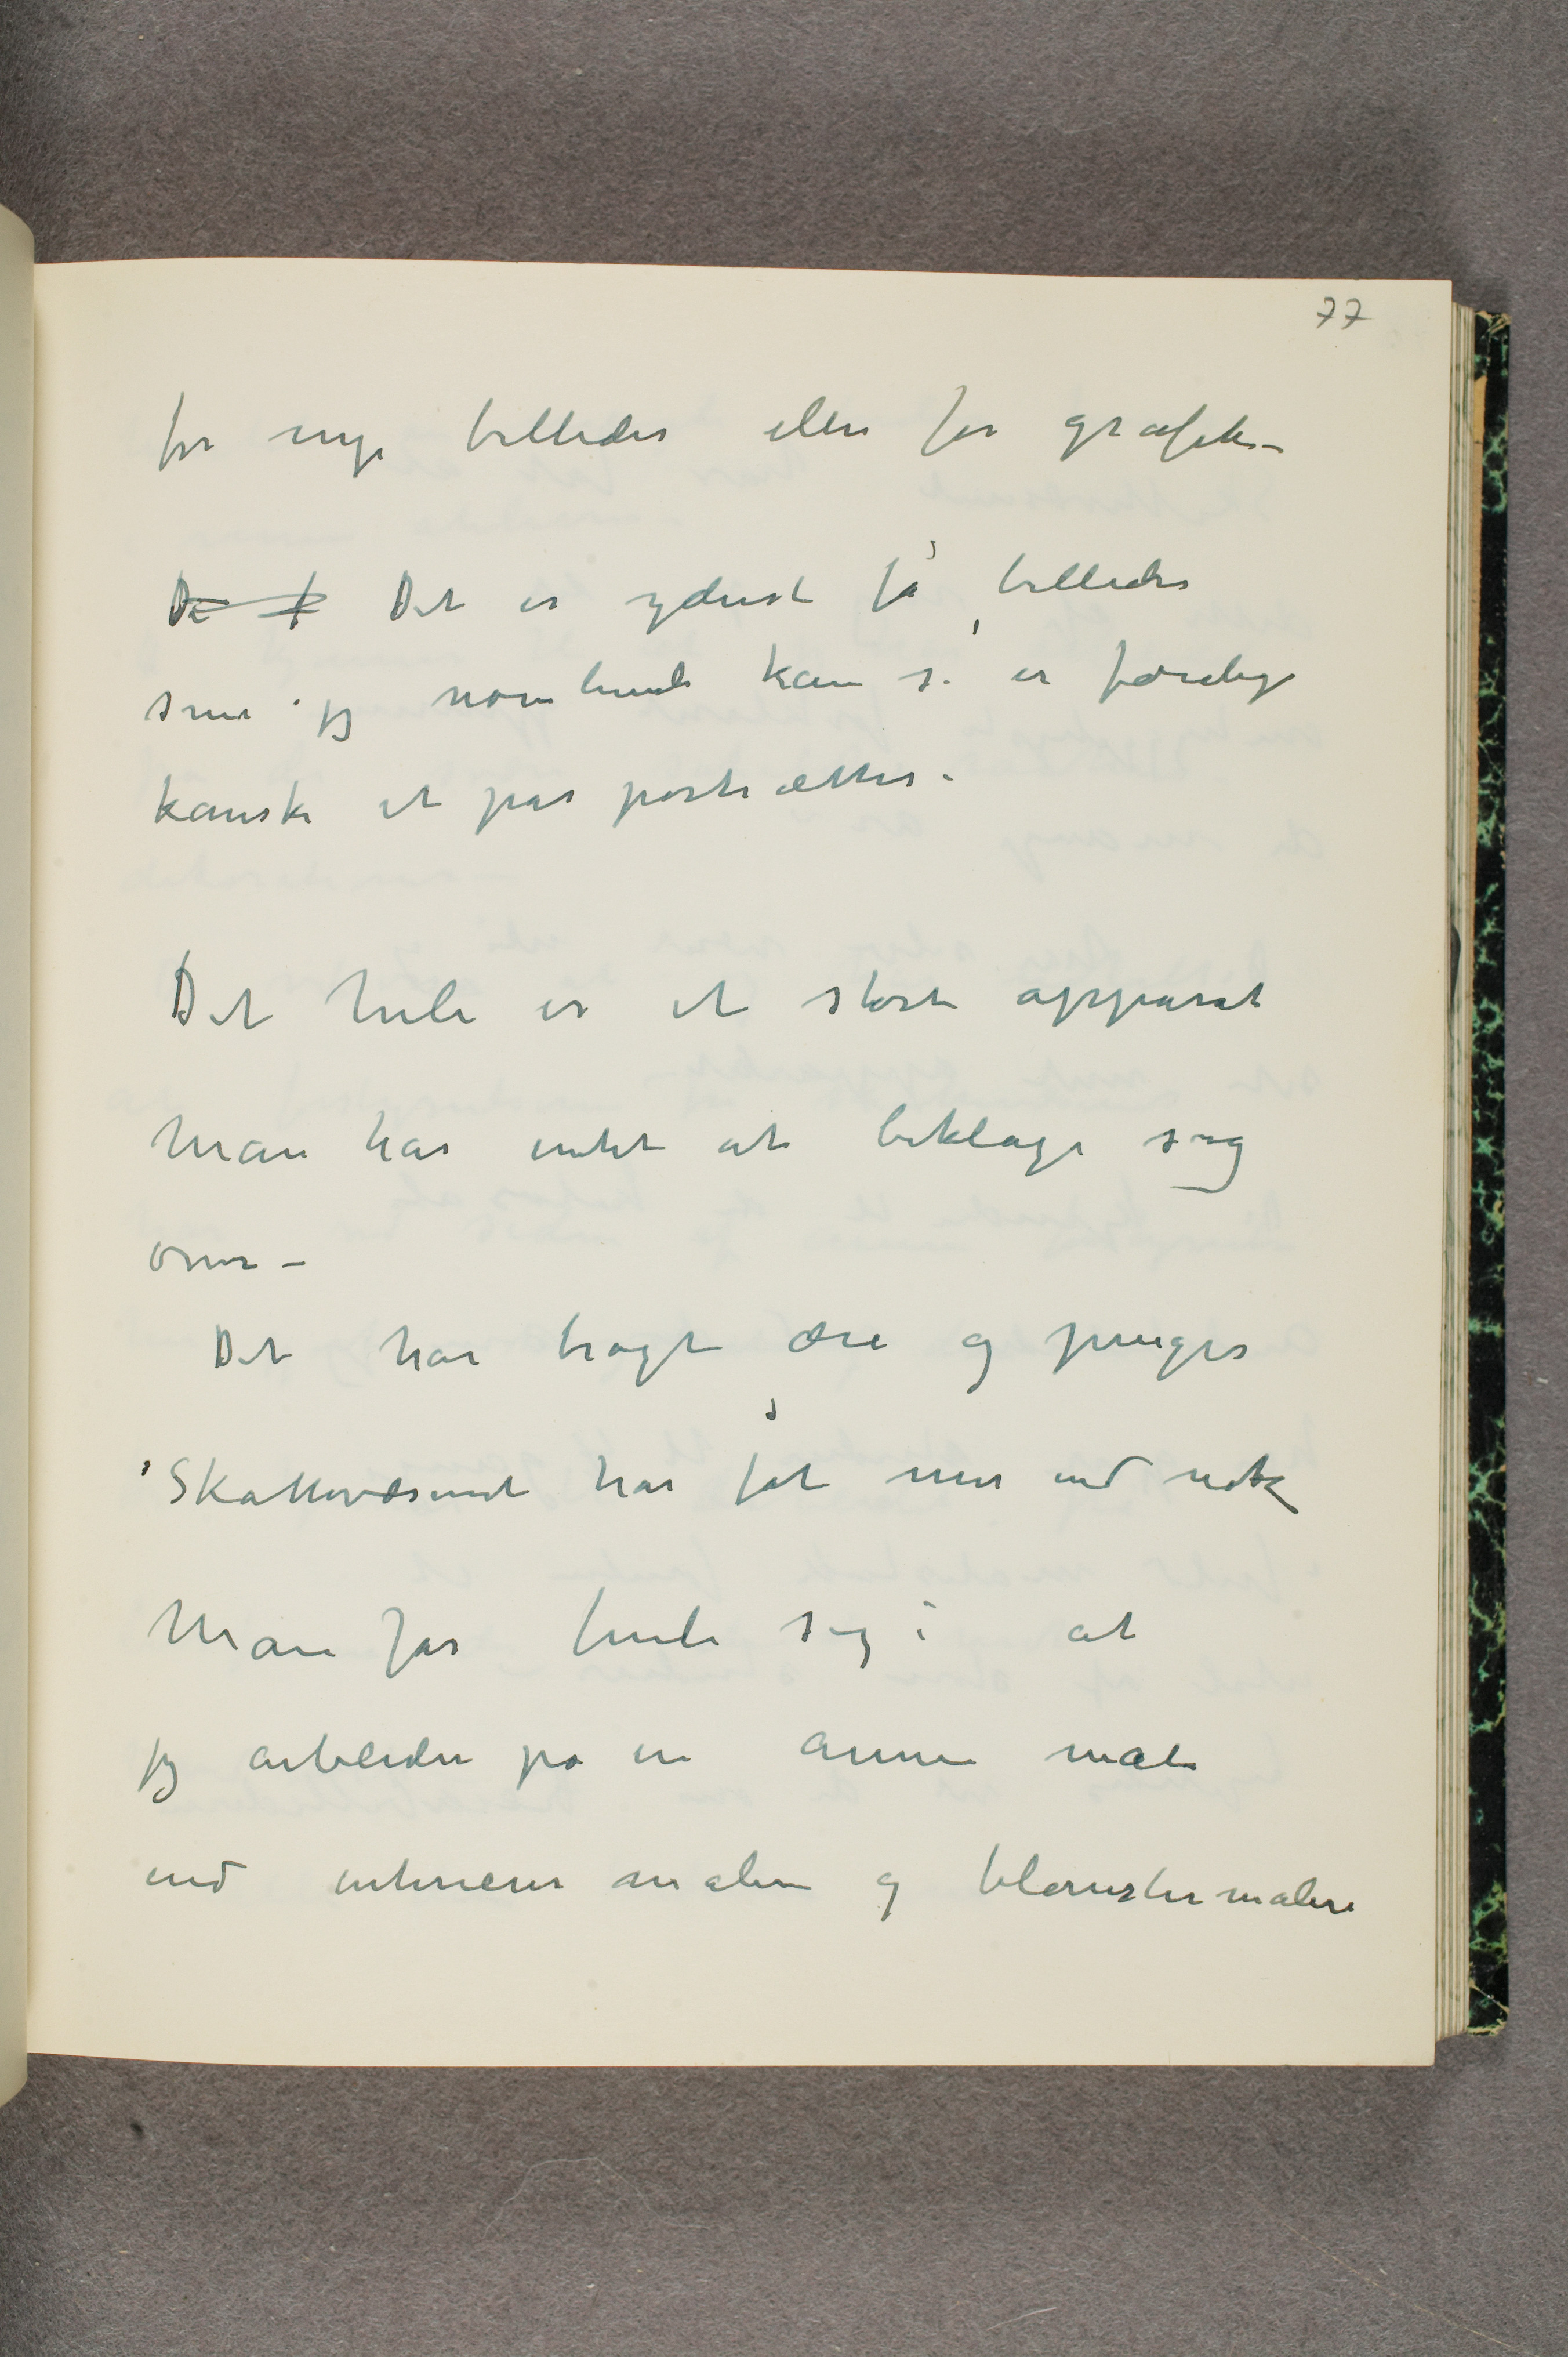 77
for nye billeder eller for grafik –
De f Det er yderst få billeder
som jeg nærmende kan si er færdige
kanske et par portrætter –
Det hele er et stort apparat
Man har intet at beklage sig
over –
Det har bragt ære og penger
Skattevæsenet har fåt mer end nok
Man får finde sig i at
jeg arbeider på en annen måte
end interieurmalere og blomstermalere